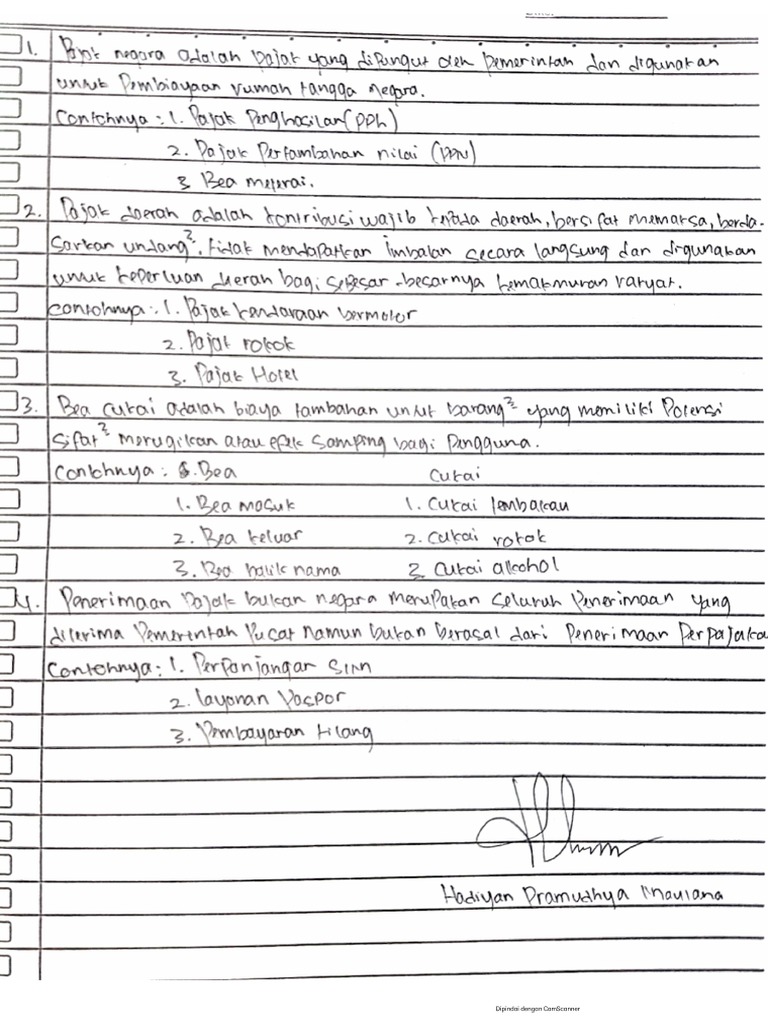 1. Pajak negara adalah pajak yang dipungut oleh pemerintah dan digunakan
untuk Pembiayaan rumah tangga negara.
Contohnya : 1. Pajak Penghasilan (PPh)
2. Pajak Pertambahan nilai (PPN)
3 Bea meterai.
2. Pajak daerah adalah kontribusi wajib kepada daerah, bersifat memaksa, berda-
sarkan undang². tidak mendapatkan imbalan secara langsung dan digunakan
untuk keperluan daerah bagi sebesar-besarnya kemakmuran rakyat.
Contohnya : 1. Pajak kendaraan bermotor
2. Pajak rokok
3. Pajak Hotel
3. Bea cukai adalah biaya tambahan untuk barang² yang memiliki Potensi
sifat² merugikan atau efek samping bagi Pengguna.
Contohnya : Bea Cukai
1. Bea masuk 1. Cukai tembakau
2. Bea keluar 2. Cukai rokok
3. Bea balik nama 3. Cukai alkohol
4. Penerimaan Pajak bukan negara merupakan seluruh Penerimaan yang
diterima Pemerintah Pusat namun bukan berasal dari Penerimaan Perpajaka
Contohnya : 1. Perpanjangan SIM
2. layanan Paspor
3. Pembayaran tilang
Hadiyan Pramudhya Maulana
Dipindai dengan CamScanner